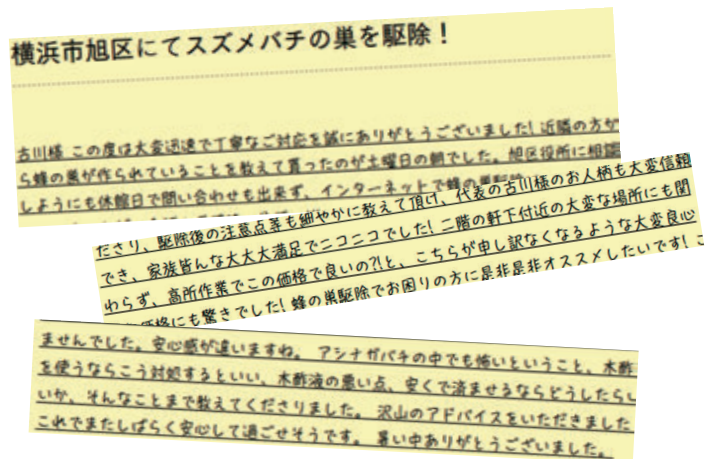 横浜市旭区にてスズメバチの巣を駆除！
古川様 この度は大変迅速で丁寧なご対応を誠にありがとうございました! 近隣の方か
ら蜂の巣が作られていることを教えて貰ったのが土曜日の朝でした。旭区役所に相談
しようにも休館日で問い合わせも出来ず、インターネットで蜂の巣駆除
ださり、駆除後の注意点等も細やかに教えて頂け、代表の古川様のお人柄も大変信頼
でき、家族皆んな大大大満足でニコニコでした! 二階の軒下付近の大変な場所にも関
わらず、高所作業でこの価格で良いの?!と、こちらが申し訳なくなるような大変良心
価格にも驚きでした! 蜂の巣駆除でお困りの方に是非是非オススメしたいです! こ
ませんでした。安心感が違いますね。 アシナガバチの中でも怖いということ、木酢
を使うならこう対処するといい、木酢液の悪い点、安くで済ませるならどうしたらい
いか、そんなことまで教えてくださりました。 沢山のアドバイスをいただきました
これでまたしばらく安心して過ごせそうです。 暑い中ありがとうございました。